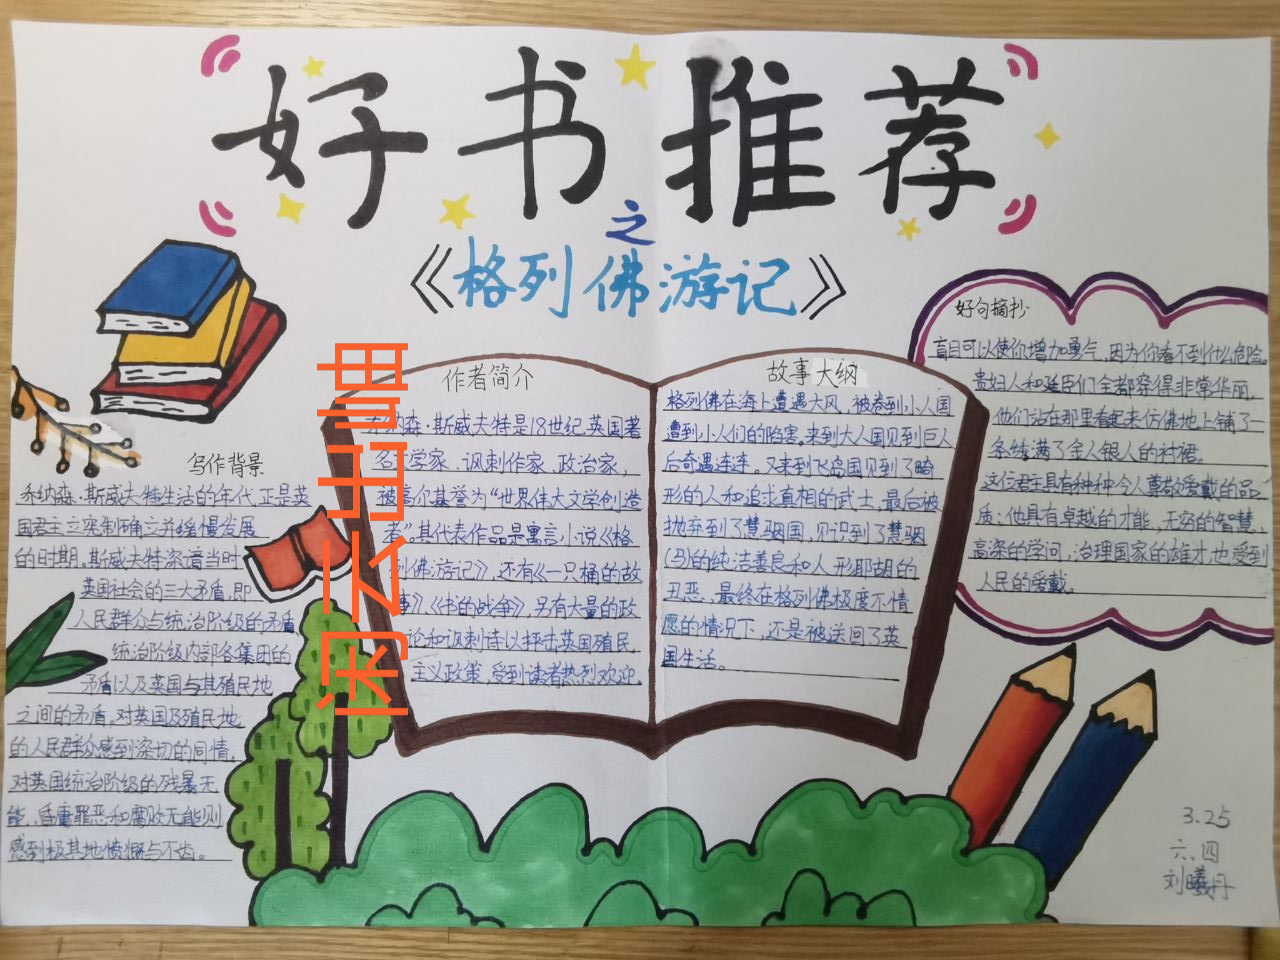 好书推荐
之
《格列佛游记》
写作背景
乔纳森·斯威夫特生活的年代,正是英
国君主立宪制确立并缓慢发展
的时期。斯威夫特深谙当时
英国社会的三大矛盾,即
人民群众与统治阶级的矛盾
统治阶级内部各集团的
矛盾以及英国与其殖民地
之间的矛盾。对英国及殖民地
的人民群众感到深切的同情,
对英国统治阶级的残暴无
能、昏庸罪恶和腐败无能则
感到极其地愤慨与不齿。
作者简介
乔纳森·斯威夫特是18世纪英国著
名文学家、讽刺作家、政治家,
被高尔基誉为“世界伟大文学创造
者”其代表作品是寓言小说《格
列佛游记》,还有《一只桶的故
事》《书的战争》另有大量的政
论和讽刺诗以抨击英国殖民
主义政策,受到读者热烈欢迎。
故事大纲
格列佛在海上遭遇大风,被卷到小人国
遭到小人们的陷害,来到大人国见到巨人
后奇遇连连。又来到飞岛国见到了畸
形的人和追求真相的武士,最后被
抛弃到了慧骃国,见识到了慧骃
(马)的纯洁善良和人形耶胡的
丑恶,最终在格列佛极度不情
愿的情况下,还是被送回了英
国生活。
好句摘抄
盲目可以使你增加勇气,因为你看不到什么危险。
贵妇人和廷臣们全都穿得非常华丽,
他们站在那里看起来仿佛地上铺了一
条绣满了金人银人的衬裙。
这位君主具有种种令人尊敬爱戴的品
质:他具有卓越的才能,无穷的智慧,
高深的学问,治理国家的雄才,也受到
人民的爱戴。
3.25
六、四
刘曦丹